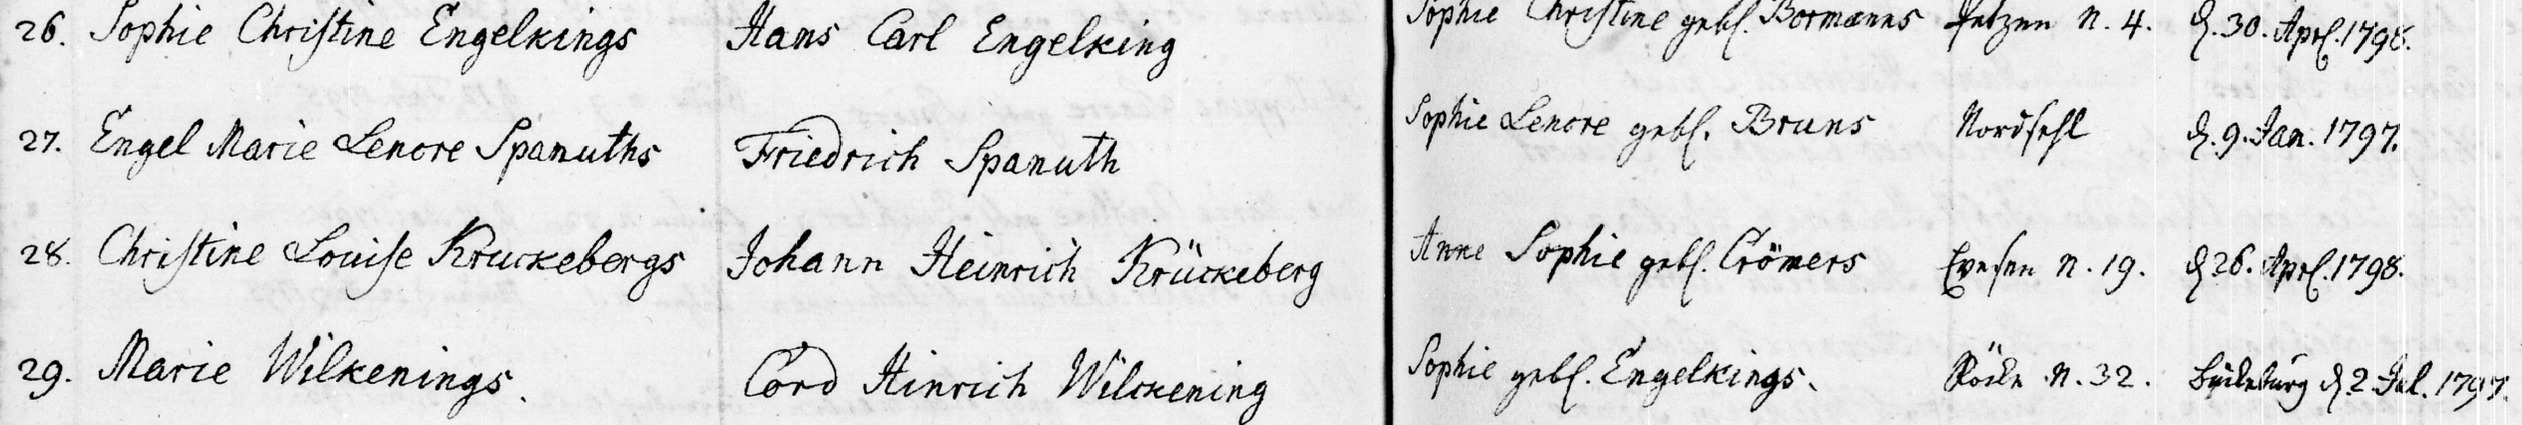 26. Sophie Christine Engelkings Hans Carl Engelking Sophie Christine gebl. Bormanns Petzen n. 4. d. 30. Aprl. 1798.
27. Engel Marie Lenore Spanuths Friedrich Spanuth Sophie Lenore gebl. Bruns Nordsehl d. 9. Jan. 1797.
28. Christine Louise Kruckebergs Johann Heinrich Krückeberg Anne Sophie gebl. Crömers Evesen n. 19. d 26. Aprl. 1798.
29. Marie Wilkenings. Cord Hinrich Wilckening Sophie gebl. Engelkings. Röcke n. 32. Bückeburg d. 2. Jul. 1797.